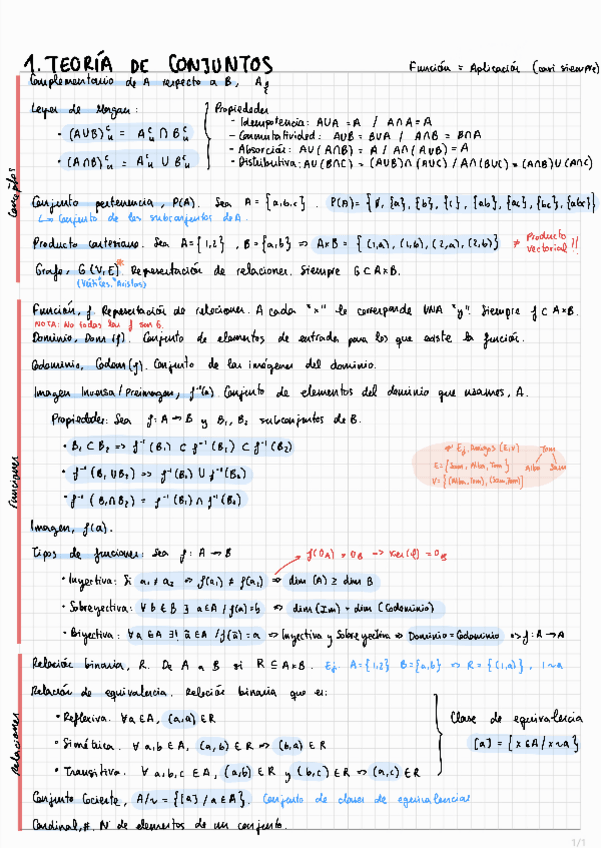 1. TEORÍA DE CONJUNTOS
Función = Aplicación (casi siempre)
Complementario de A respecto a B,
Leyes de Morgan:
· (A∪B)ᶜᵤ = Aᶜᵤ ∩ Bᶜᵤ
· (A∩B)ᶜᵤ = Aᶜᵤ ∪ Bᶜᵤ
Propiedades
- Idempotencia: A∪A = A / A∩A = A
- Conmutatividad: A∪B = B∪A / A∩B = B∩A
- Absorción: A∪(A∩B) = A / A∩(A∪B) = A
- Distributiva: A∪(B∩C) = (A∪B)∩(A∪C) / A∩(B∪C) = (A∩B)∪(A∩C)
Conceptos
Conjunto pertenencia, P(A). Sea A = {a,b,c}. P(A) = {∅, {a}, {b}, {c}, {ab}, {ac}, {bc}, {abc}}
↳ Conjunto de los subconjuntos de A.
Producto cartesiano. Sea A = {1,2}, B = {a,b} => A×B = {(1,a), (1,b), (2,a), (2,b)} ≠ Producto vectorial!!
Grafo, G(V,E)* Representación de relaciones. Siempre G ⊂ A×B.
(Vértices, Aristas)
Funciones
Función, f Representación de relaciones. A cada "x" le corresponde UNA "y". Siempre f ⊂ A×B.
NOTA: No todas las f son G.
Dominio, Dom(f). Conjunto de elementos de entrada para los que existe la función.
Codominio, Codom(f). Conjunto de las imágenes del dominio.
Imagen Inversa / Preimagen, f⁻¹(a). Conjunto de elementos del dominio que usamos, A.
Propiedades: Sea f: A → B y B₁, B₂ subconjuntos de B.
· B₁ ⊂ B₂ => f⁻¹(B₁) ⊂ f⁻¹(B₂)
· f⁻¹(B₁∪B₂) => f⁻¹(B₁) ∪ f⁻¹(B₂)
· f⁻¹(B₁∩B₂) = f⁻¹(B₁) ∩ f⁻¹(B₂)
* Ej. Amigos (E,V)
E = {Sam, Alba, Tom}
V = {(Alba,Tom), (Sam,Tom)}
Tom
Alba Sam
Imagen, f(a).
Tipos de funciones: Sea f: A → B
f(0A) = 0B -> Ker(f) = 0B
· Inyectiva: Si a₁ ≠ a₂ => f(a₁) ≠ f(a₂) => dim (A) ≥ dim B
· Sobreyectiva: ∀ b ∈ B ∃ a ∈ A / f(a) = b => dim (Im) = dim (Codominio)
· Biyectiva: ∀a ∈ A ∃! ã ∈ A / f(ã) = a => Inyectiva y Sobreyectiva => Dominio = Codominio => f: A → A
Relaciones
Relación binaria, R. De A a B si R ⊆ A×B. Ej. A = {1,2} B = {a,b} => R = {(1,a)}, 1~a
Relación de equivalencia. Relación binaria que es:
· Reflexiva. ∀a ∈ A, (a,a) ∈ R
· Simétrica. ∀ a,b ∈ A, (a,b) ∈ R => (b,a) ∈ R
· Transitiva. ∀ a,b,c ∈ A, (a,b) ∈ R y (b,c) ∈ R => (a,c) ∈ R
Clase de equivalencia
[a] = {x ∈ A / x~a}
Conjunto Cociente, A/~ = {[a] / a ∈ A}. Conjunto de clases de equivalencias
Cardinal, #. Nº de elementos de un conjunto.
1/1